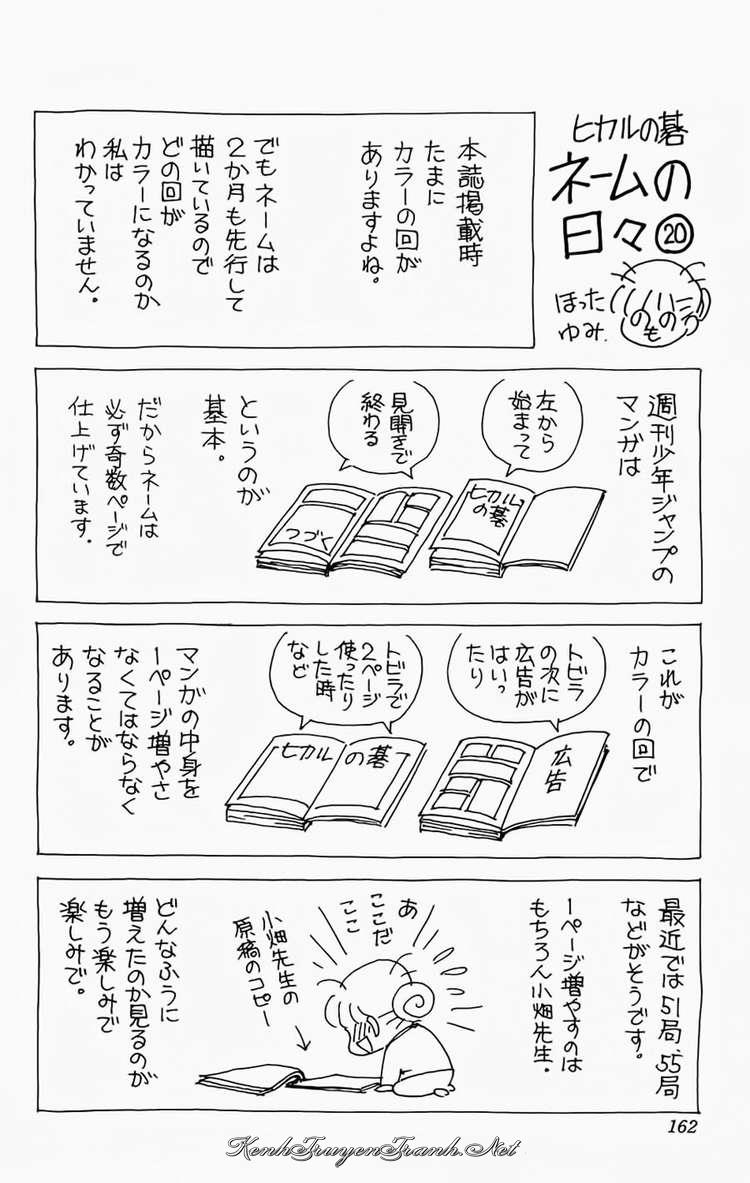 ヒカルの碁
ネームの
日々⑳
ほった
ゆみ.
本誌掲載時
たまに
カラーの回が
ありますよね。
でもネームは
2か月も先行して
描いているので
どの回が
カラーになるのか
私は
わかっていません。
週刊少年ジャンプの
マンガは
左から
始まって
ヒカル
の碁
見開きで
終わる
つづく
というのが
基本。
だからネームは
必ず奇数ページで
仕上げています.
これが
カラーの回で
トビラ
の次に
広告が
はいっ
たり
広告
トビラで
2ページ
使ったり
した時
など
ヒカルの碁
マンガの中身を
1ページ増やさ
なくてはならなく
なることが
あります。
最近では51局、55局
などがそうです。
1ページ増やすのは
もちろん小畑先生.
あ
ここだ
ここ
小畑先生の
原稿のコピー
どんなふうに
増えたのか見るのが
もう楽しみで
楽しみで。
162
KenhTruyenTranh.Net